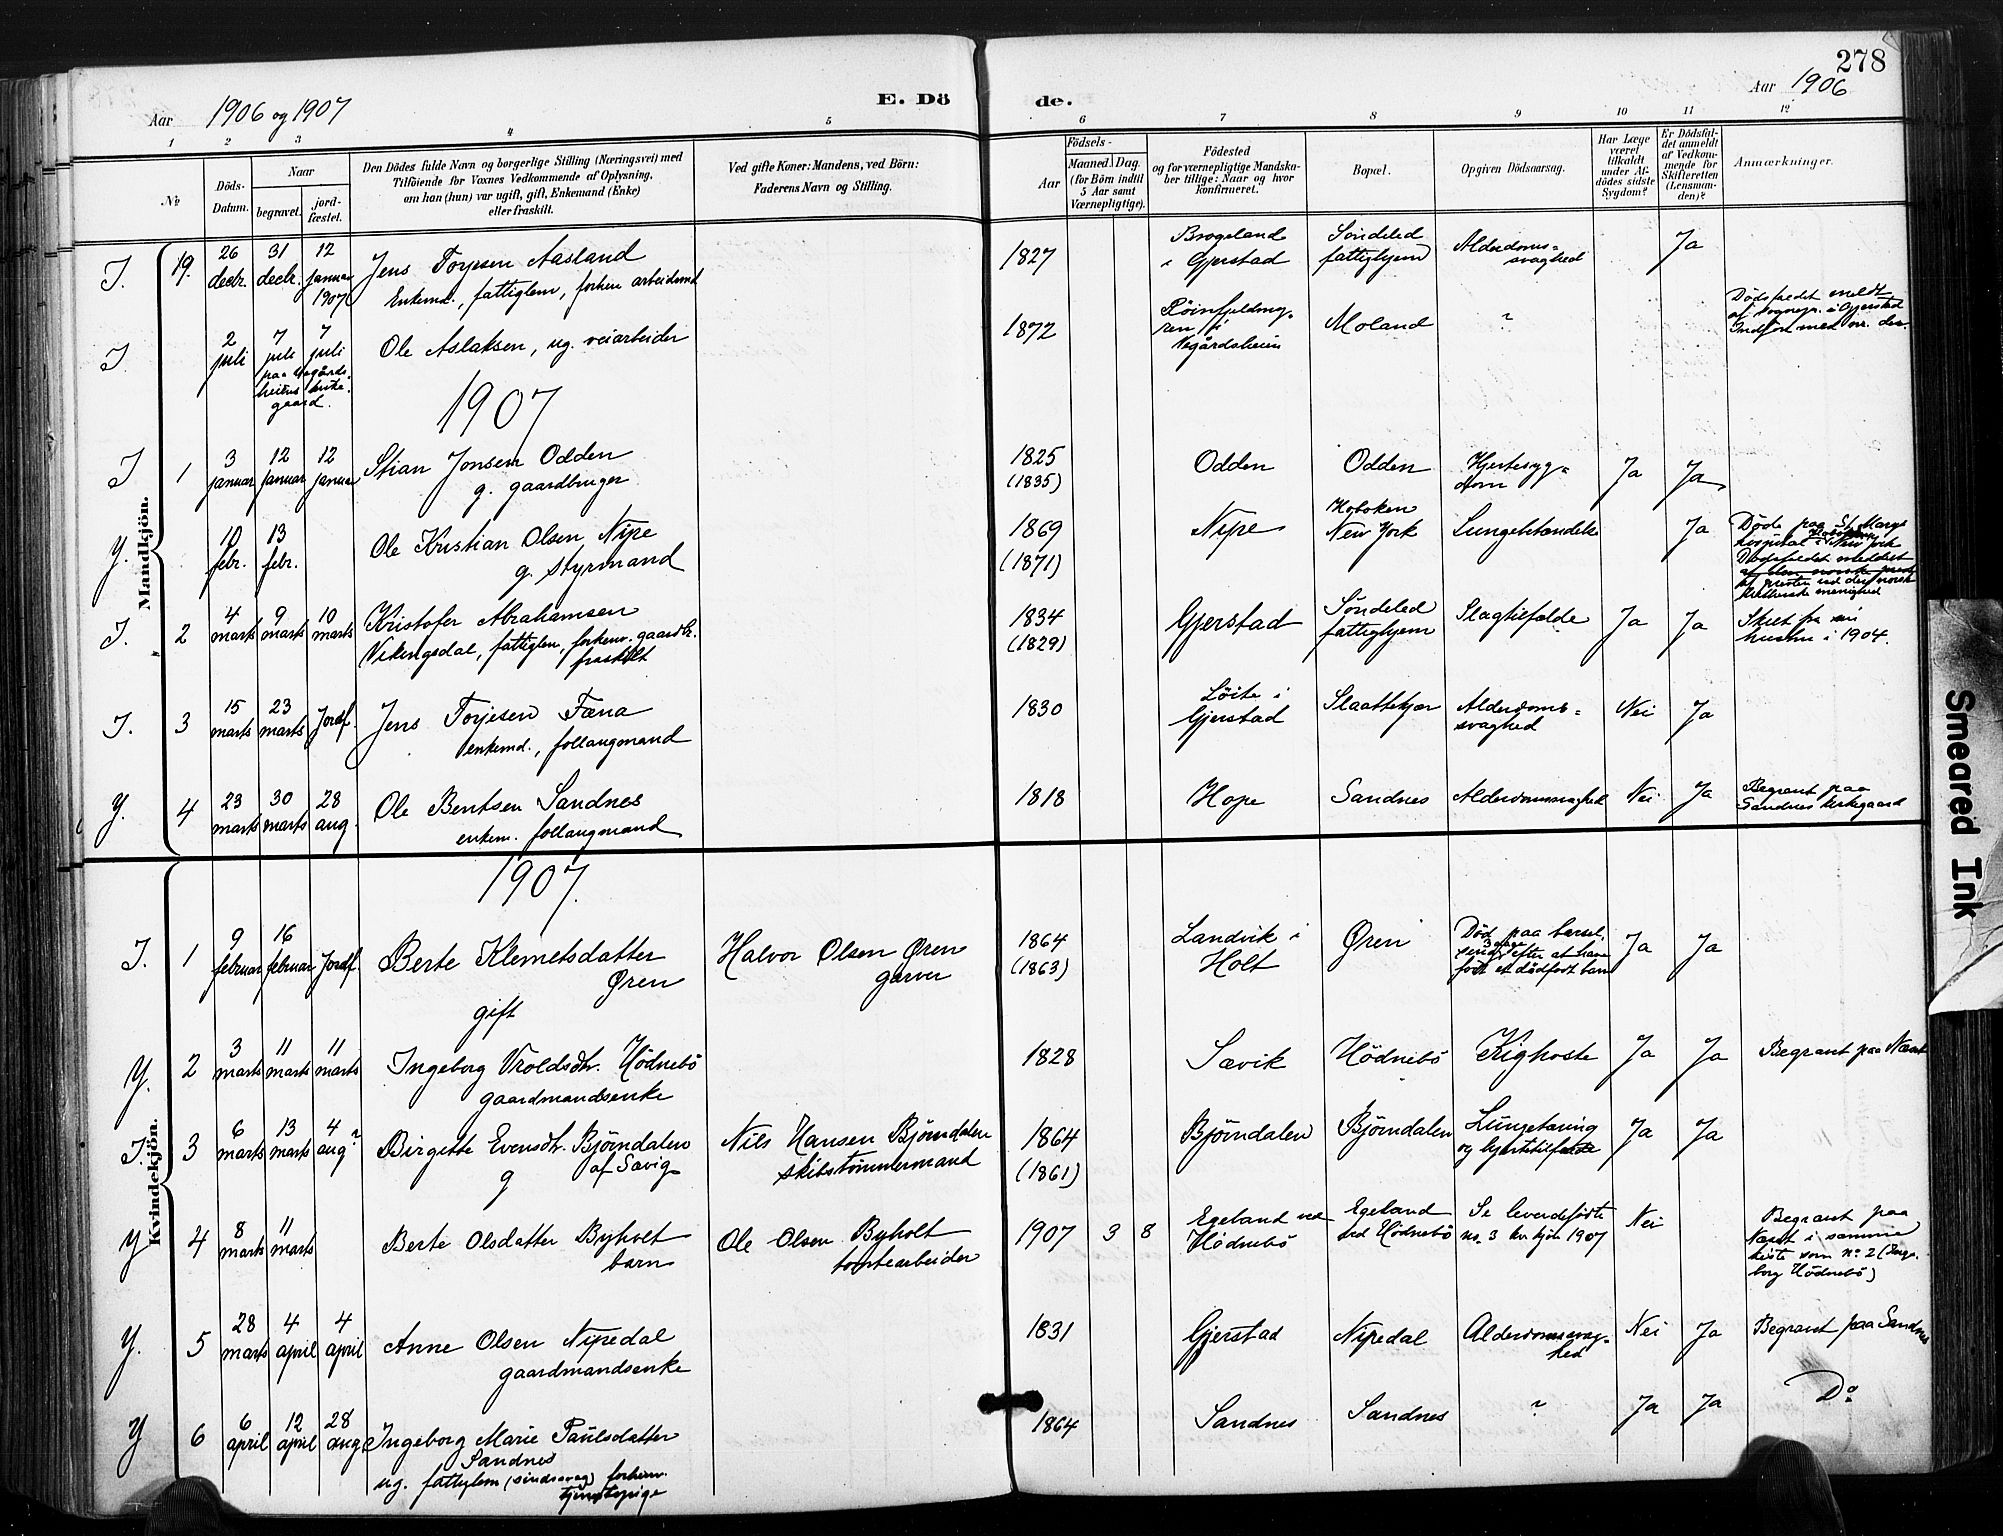 278
Aar 1906 og 1907
E. Dö de.
Aar 1906
1 2 3 4 5 6 7 8 9 10 11 12
№
Döds-Datum.
Naar
begravet.
jord-fæstet.
Den Dödes fulde Navn og borgerlige Stilling (Næringsvei) med
Tilföiende for Voxnes Vedkommende af Oplysning,
om han (hun) var ugift, gift, Enkemand (Enke)
eller fraskilt.
Ved gifte Koner: Mandens, ved Börn:
Faderens Navn og Stilling.
Födsels-
Aar
Maaned. Dag.
(for Börn indtil
5 Aar samt
Værnepligtige).
Födested
og for værnepligtige Mandska-
ber tillige: Naar og hvor
konfirmeret.
Bopæl.
Opgiven Dödsaarsag.
Har Læge
været
tilkaldt
under Af-
dödes sidste
Sygdom?
Er Dödsfal-
det anmeldt
af Vedkom-
mende for
Skifteretten
(Lensman-
den)?
Anmærkninger.
Mandkjön.
I. 19. 26 decbr. 31 decbr. 12 januar 1907
Jens Torjesen Aasland
Enkemd., fattiglem, forhen arbeidsmd
1827
i Gjerstad
Söndeled
fattighjem
Alderdoms-
svaghed
Ja
I 2 juli 7 juli 7 juli
paa Vegårds-
heiens kirke-
gaard.
Ole Aslaksen, ug. veiarbeider
1872
Vegårdsheien
Moland
?
Dödsfaldet meldt
af sognepr. i Gjerstad
1907
I 1 3 januar 12 januar 12 januar
Stian Jonsen Odden
g. gaardbruger
1825
(1835)
Odden
Odden
Hjertesyg-
dom
Ja
Ja
Y. 10 febr. 13 febr.
Ole Kristian Olsen Nipe
g. styrmand
1869
(1871)
Nipe
Hoboken
New York
Lungebetændelse
Ja
Döde paa St. Marys
hospital i Hoboken New York
Dödsfaldet meddelt
af den norske
af presten ved den norsk
lutherske menighed
I. 2 4 marts 9 marts 10 marts
Kristofer Abrahamsen
Vikingsdal, fattiglem, forhenv. gaardbr.
fraskilt
1834
(1829)
Gjerstad
Söndeled
fattighjem
Slagtilfælde
Ja
Ja
Skilt fra sin
hustru i 1904.
I. 3 15 marts 23 marts Jordf.
Jens Torjesen Fæna
enkemd., follaugmand
1830
Löite i
Gjerstad
Slaattekjær
Alderdoms-
svaghed
Nei
Ja
Y. 4 23 marts 30 marts 28 aug.
Ole Bentsen Sandnes
enkem. follaugmand
1818
Hope
Sandnes
Alderdomssvaghed
Nei
Ja
Begravet paa
Sandnes kirkegaard
1907.
Kvindekjön.
I. 1 9 februar 16 februar Jordf.
Berte Klemetsdatter
Øren
gift
Halvor Olsen Øren
garver
1864
(1863)
Landvik i
Holt
Øren
Död paa barsel-
seng 3 dage efter at have
födt et dödfödt barn
Ja
Ja
Y. 2 3 marts 11 marts 11 marts
Ingeborg Vroldsdtr. Hödnebö
gaardmandsenke
1828
Sævik
Hödnebö
Kighoste
Ja
Ja
Begravet paa Næset
I. 3 6 marts 13 marts 4 aug?
Birgette Evensdtr. Björndalen
af Savig
g
Nils Hansen Björndalen
skibstömmermand
1864
(1861)
Björndalen
Björndalen
Lungetæring
og hjertetilfælde
Ja
Ja
Y 4 8 marts 11 marts
Berte Olsdatter Byholt
barn
Ole Olsen Byholt
tomtearbeider
1907 3 8
Egeland ved
Hödnebö
Egeland
ved Hödnebö
Se levendefödte
no. 3 kv. kjön 1907
Nei
Begravet paa
Næset i samme
kiste som no. 2 (Inge-
borg Hödnebö)
Y. 5 28 marts 4 april 4 april
Anne Olsen Nipedal
gaardmandsenke
1831
Gjerstad
Nipedal
Alderdomssvag-
hed
Nei
Ja
Begravet paa Sandnes
Y 6 6 april 12 april 28 aug
Ingeborg Marie Paulsdatter
Sandnes
ug. fattiglem (sindssvag) forhenv.
tjenestepige
1864
Sandnes
Sandnes
?
Ja
Ja
Do
Smeared Ink